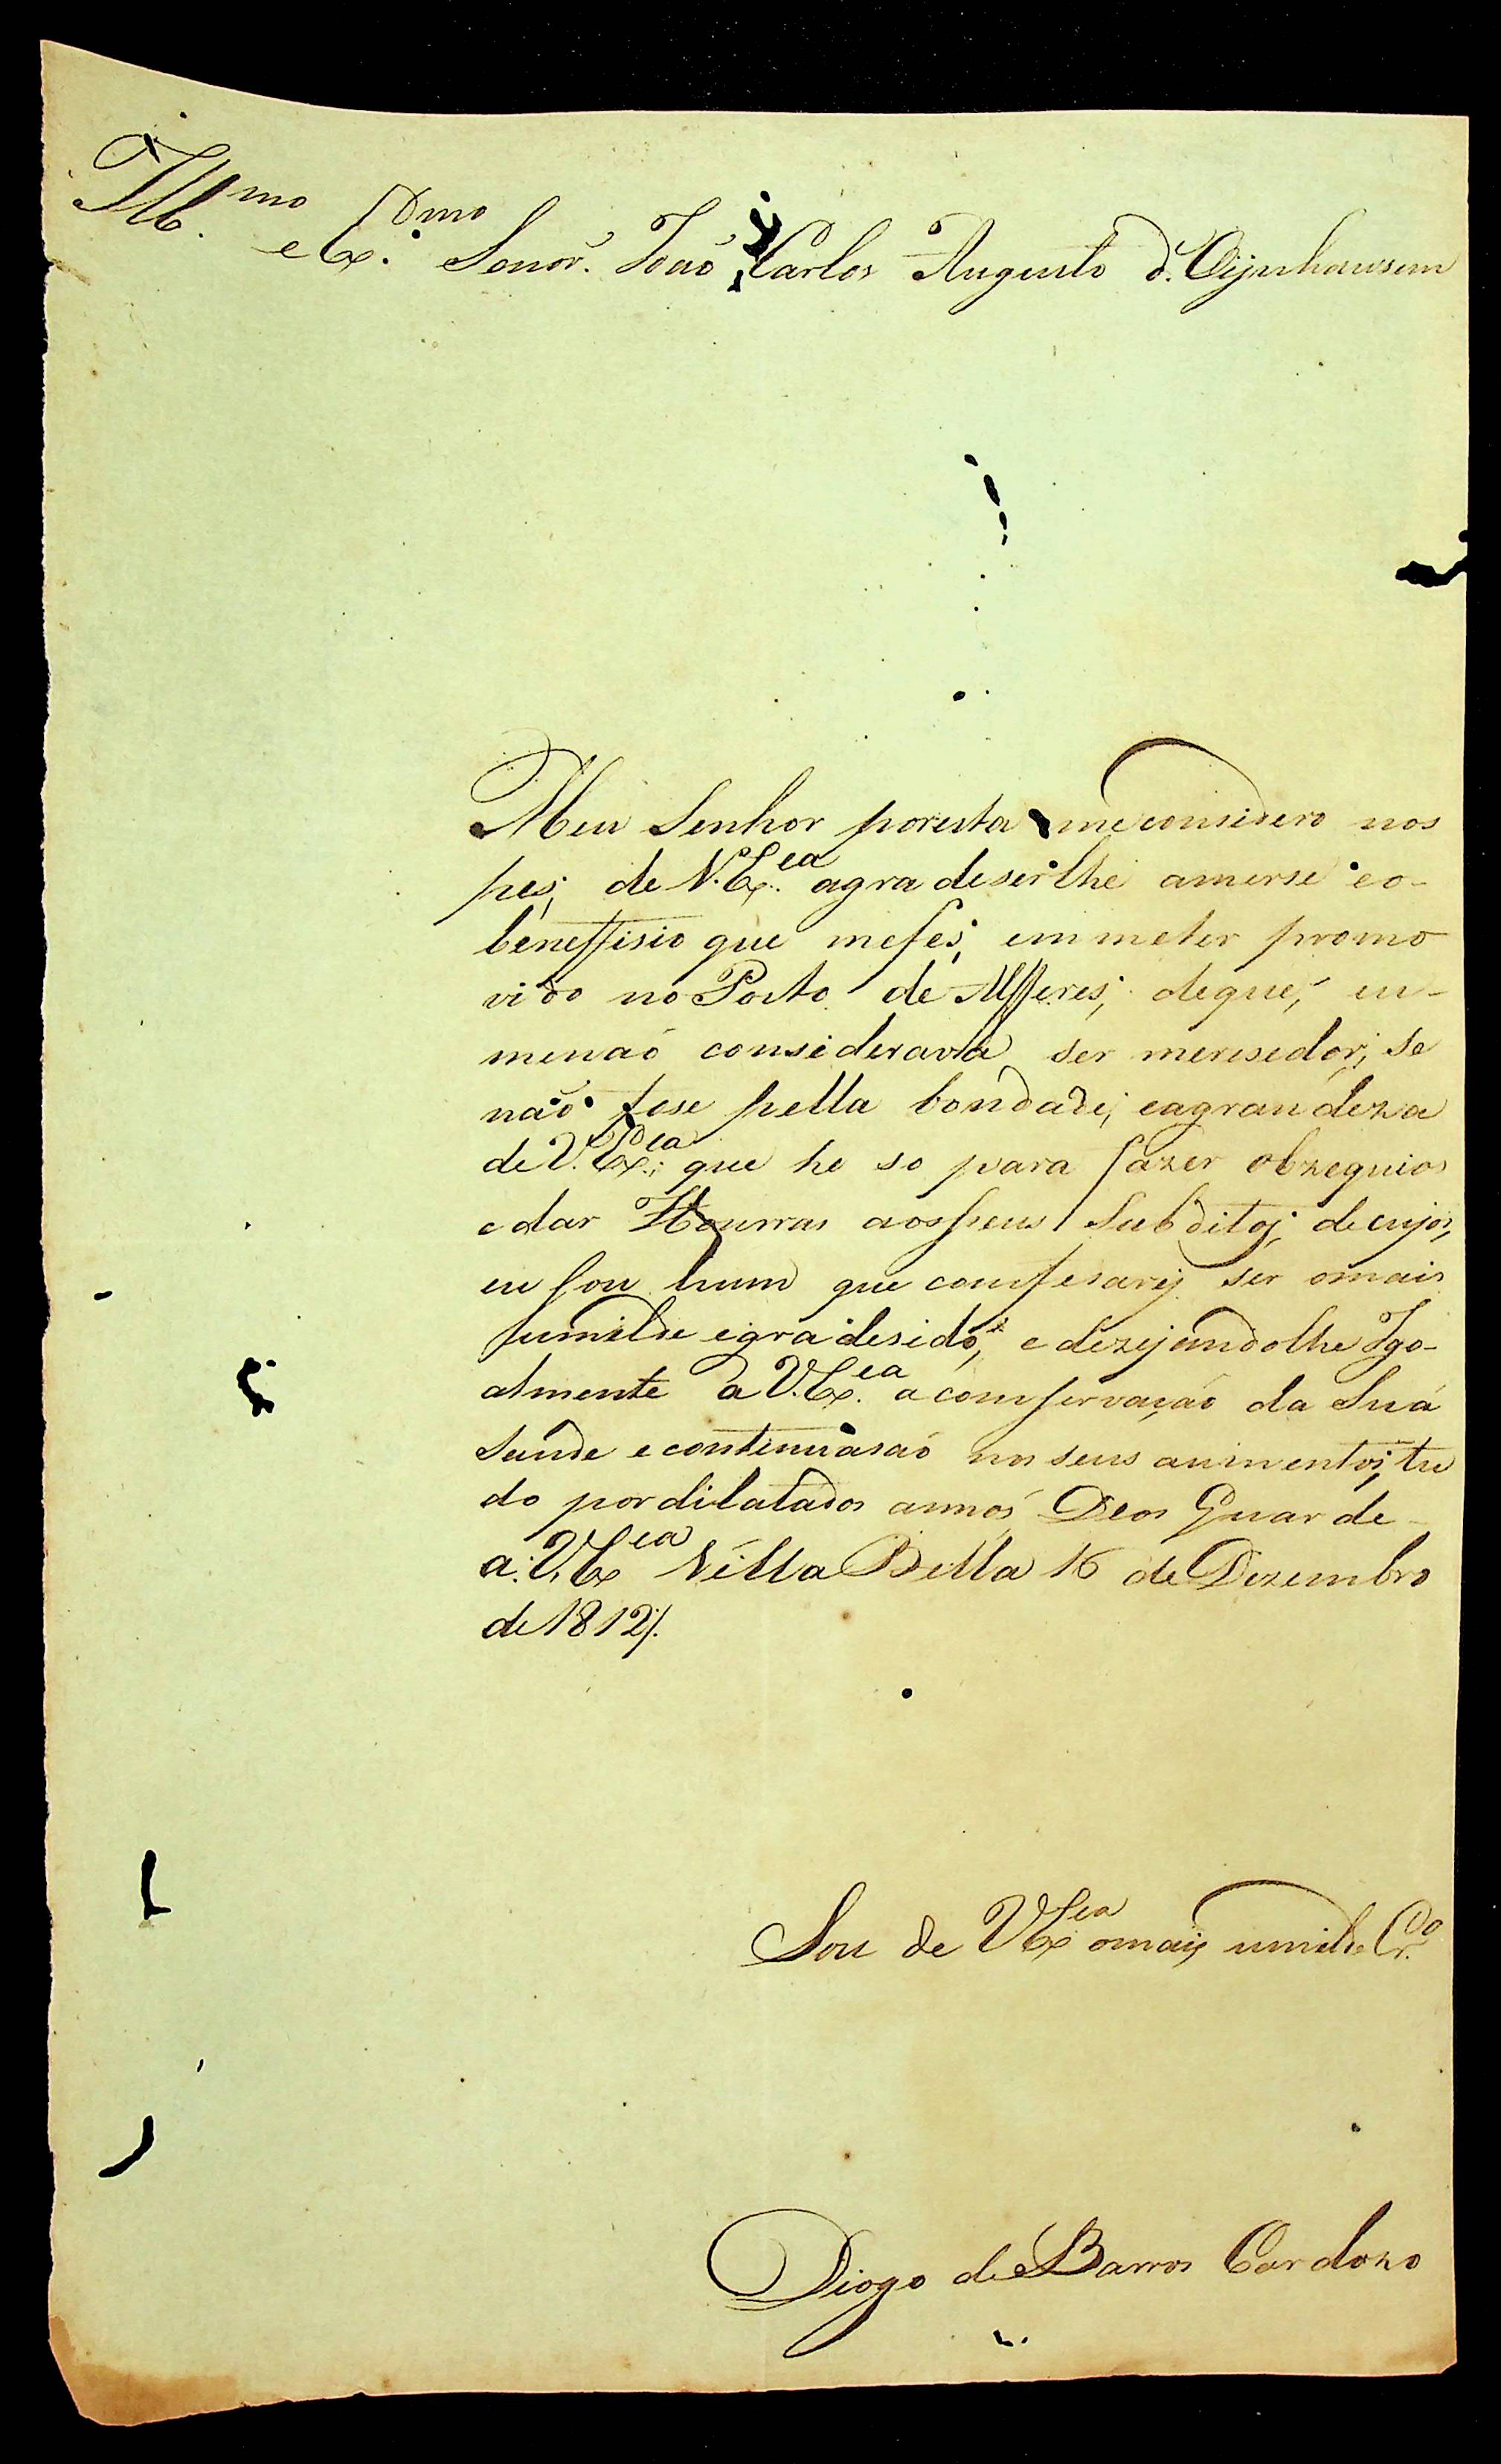 Ill.mo e Ex.mo Senor. João Carlos Augusto d'Oijnhausem
Meu Senhor poresta meconsidero nos
pes, de V. Ex.ca agradeserlhe amerse eo-
beneffisio que mefes, emmeter promo
vido no Posto de Alfferes, deque, eu-
menaõ considerava ser meresedor, se
naõ fose pella bondade, eagrandeza
de V. Ex.ca; que he so para fazer obzequios
edar Hourras aosseus Subditos, decujos,
eu sou hum que comfesarej ser omais
humilde egradesido, e dezejandolhe Igo-
almente a V. Ex.ca acomservaçaõ da Sua
Saude econtinuasaõ nos seus aumentos, tu
do pordilatados annos Deos Guarde-
a V. Ex.ca Villa Bella 16 de Dezembro
de 1812/.
Sou de V Ex.ca omais umilde Cr.do
Diogo de Barros Cardozo